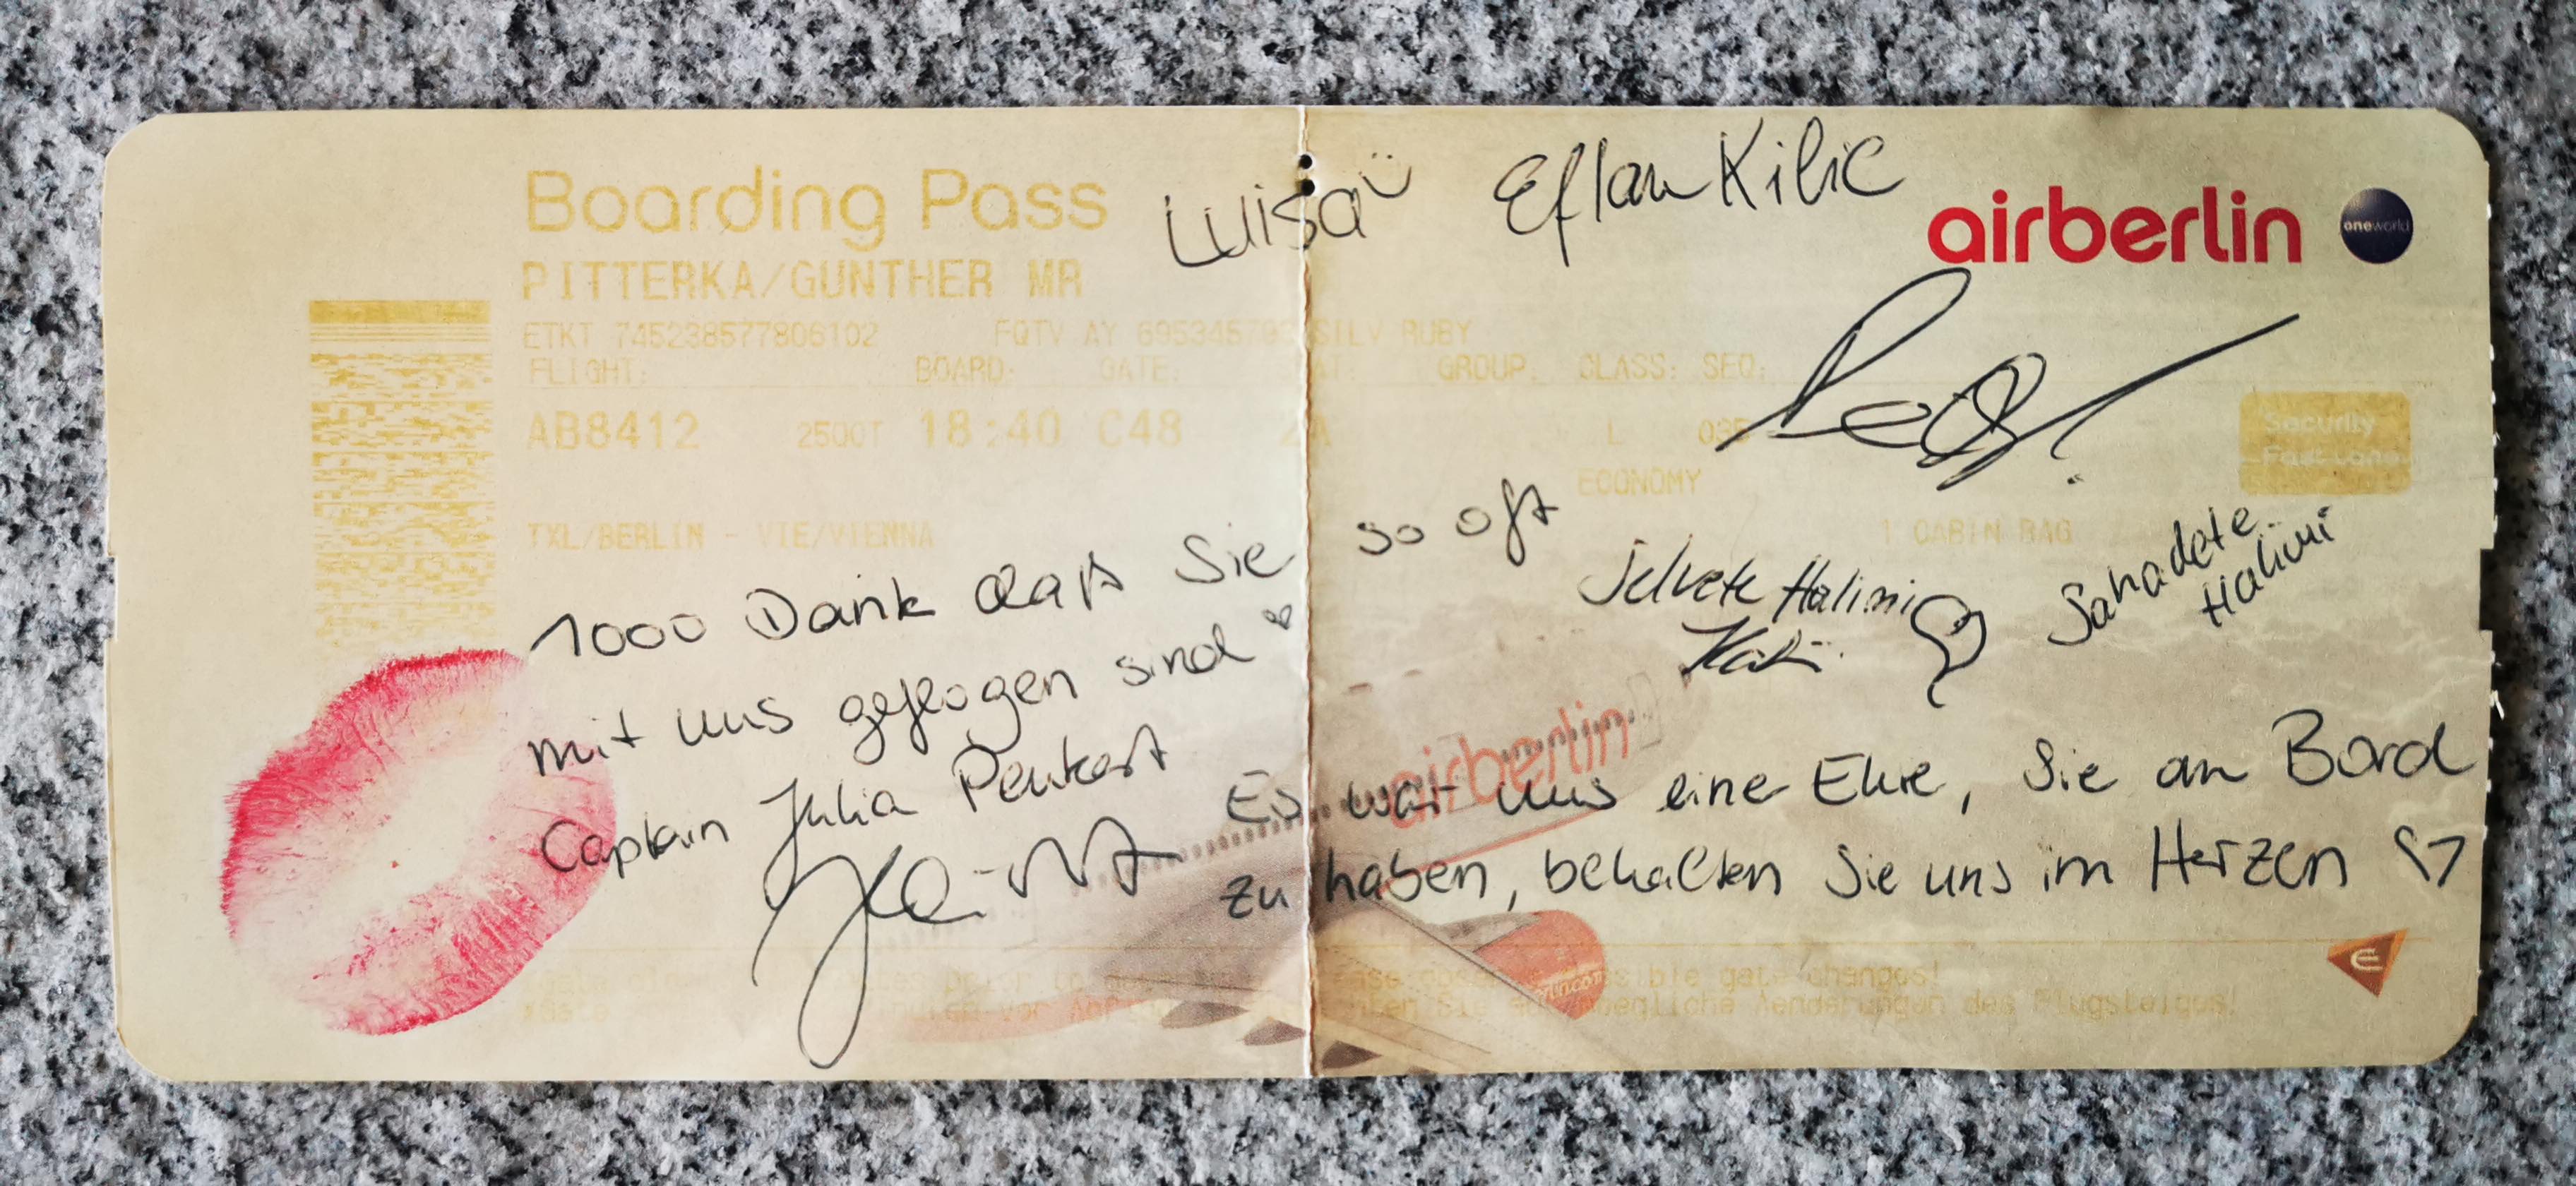 Boarding Pass
Luisa
Eflan Kilic
airberlin
oneworld
PITTERKA/GUNTHER MR
ETKT 745238577806102 FQTV AY SILV RUBY
FLIGHT: BOARD: GATE: GROUP. CLASS: SEQ:
AB8412 25OCT 18:40 C48 L
Security
Fast Lane
ECONOMY
TXL/BERLIN - VIE/VIENNA
1 CABIN BAG
1000 Dank daß Sie so oft
mit uns geflogen sind
Captain Julia Peukert
Halimi
Sahadete
Halimi
airberlin
Es war uns eine Ehre, Sie an Bord
zu haben, behalten Sie uns im Herzen
gate changes!
moegliche Aenderungen des Flugsteiges!